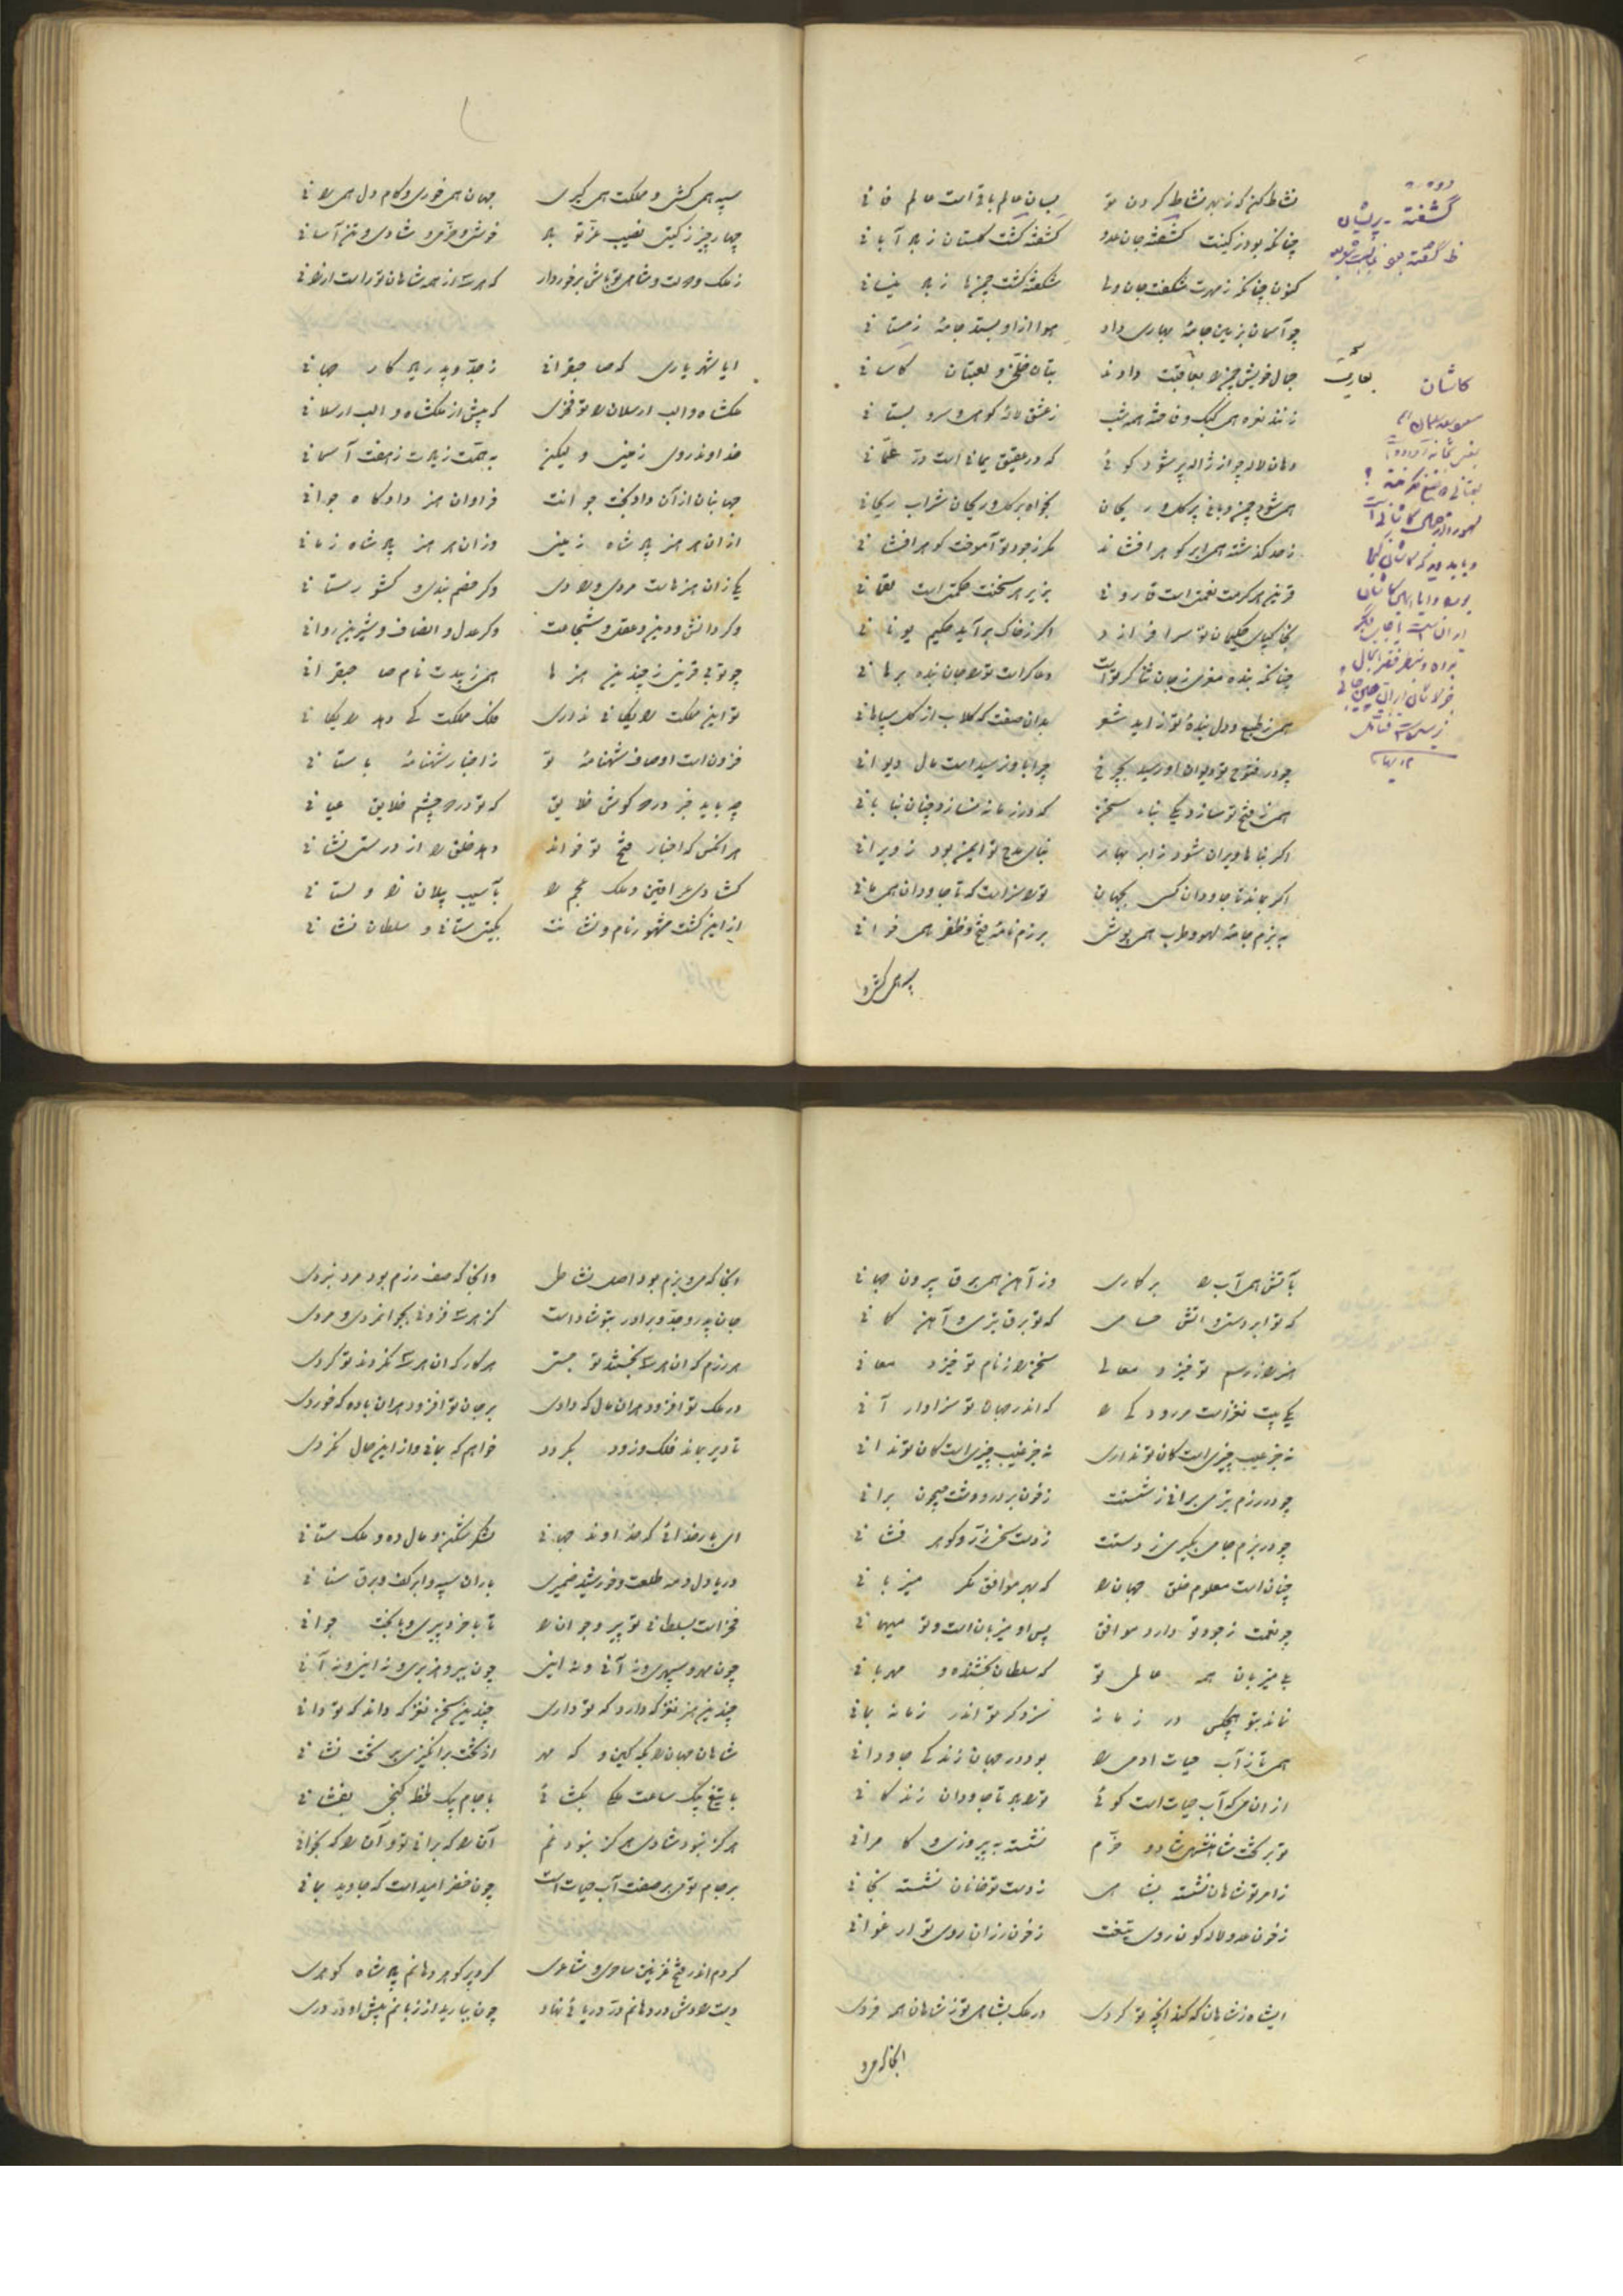 نشاط کن که ز بهر نشاط کردن تو بسان عالم باقی است عالم فانی
چنانکه بود ز کینت کشفته جان عدو کشفته گشت گلستان ز باد آبانی
کنون چنانکه ز مهرت شکفت جان ولی شکفته گشت چمنها ز باد نیسانی
چو آسمان بزمین جامهٔ بهاری داد هوا ازو بستد جامهٔ زمستانی
جمال خویش چمن را بعاقبت دادند بتان خلخی و لعبتان کاسانی
زنند نعره همی کبک و فاخته همه شب ز عشق لالهٔ کوهی و سرو بستانی
دهان لاله چو از ژاله پر شود گوئی که در عقیق یمانی است در عمانی
همی شود چمن و باغ پر گل و ریحان بخواه بر گل و ریحان شراب ریحانی
ز حد گذشته همی ابر گوهر افشاند مگر ز جود تو آموخت گوهر افشانی
قرین هر کرمت نعمتی است قارونی بزیر هر سخنت حکمتی است لقمانی
اگر ز خاک برآید حکیم یونانی
چنانکه بنده معزی ز جان ثناگر توست دعاگر است ترا جان بنده برهانی
همی ز طبع و دل بندهٔ تو زاید شعر بدان صفت که گلاب از گل سپاهانی
چو در فتوح تو دیوان او رسید بچرخ چرا باو نرسید است مال دیوانی
همی ز فتح تو سازد یکی بناء سخن که در زمانه نسازد چنان بنا بانی
اگر بناها ویران شود ز ابر بهار بنای مدح تو ایمن بود ز ویرانی
اگر بماند تا جاودان کسی بجهان تو را سزا است که تا جاودان همی مانی
به بزم جامهٔ لهو و طرب همی پوشی برزم نامهٔ فتح و ظفر همی خوانی
سپه همی کش و
کشفته - پریشان
کاشان
سپه همی کش و مملکت همی گیری جهان همی خور و کام دل همی رانی
چهار چیز ز گیتی نصیب عز تو باد خوشی و خرمی و شادی و تن آسانی
ز ملک و دولت و شاهی تو باش برخوردار که هر سه از همه شاهان تو راست ارزانی
ایا شهریاری که صاحبقرانی ز جد و پدر یادگار جهانی
ملکشاه و الب ارسلان را تو فخری که پیش از ملکشاه و الب ارسلانی
خداوند روی زمینی و لیکن به همت زیادت ز هفت آسمانی
جهانبان از آن داد بخت جوانت فراوان هنر داد گاه جوانی
از آن هر هنر پادشاه زمینی وزان هر هنر پادشاه زمانی
یکی زان هنرهاست مردی و رادی دگر خصم بندی و کشور ستانی
دگر دانش و دین و عقل و شجاعت دگر عدل و انصاف و شیرین روانی
چو تو بی قرینی ز چندین هنرها همی زیبدت نام صاحبقرانی
تو این مملکت رایگانی نداری ملک مملکت کی دهد رایگانی
فزون است اوصاف شهنامهٔ تو ز اخبار شهنامهٔ باستانی
چه باید خبر در گوش خلایق که تو در چشم خلایق عیانی
هر آنکس که اخبار فتح تو خواند دهد خلق را از درستی نشانی
گشادی عراقین و ملک عجم را بآسیب پیلان زاولستانی
ازین گشت مشهور نام و نشانت بگیتی ستانی و سلطان نشانی
بآتش همی آب را برگماری وز آهن همی برق بیرون جهانی
که تو ابر دستی و آتش حسامی که تو برق تیری و آهن کمانی
هنر را ز رسم تو خیزد معالی سخن را ز نام تو خیزد معانی
یکی بیت نغز است مر رودکی را که اندر جهان تو سزاوار آنی
نه جز عیب چیزی است کان تو نداری نه جز غیب چیزی است کان تو ندانی
چو در رزم تیری برانی ز شستت ز خون بر در و دشت جیحون برانی
چو در بزم جامی بگیری ز دستت ز دست سخی زر و گوهر فشانی
چنان است معلوم خلق جهان را که بهر موافق مگر میزبانی
چو نعمت ز جود تو دارد موافق پس او میزبان است و تو میهمانی
یا میزبان همه عالمی تو که سلطان بخشنده و مهربانی
نماند بتو هیچکس در زمانه سزد گر تو اندر زمانه بمانی
همی تا ز آب حیات آدمی را بود در جهان زندگی جاودانی
از آن می که آب حیات است گوئی تو را باد تا جاودان زندگانی
تو بر تخت شاهنشهی شاد و خرم نشسته به پیروزی و کامرانی
ز امر تو شاهان نشسته بشاهی ز دست تو خانان نشسته بخانی
ز خون عدو لاله گون روی تیغت ز خون رزان روی تو ارغوانی
ای شاه ز شاهان که کند آنچه تو کردی در ملک بشاهی تو ز شاهان همه فردی
آنجا که می
آنجا که می و بزم بود اصل نشاطی وآنجا که صف رزم بود مرد نبردی
جان پدر و جد و برادر بتو شاد است کز هر سه فزونی بجوانمردی و مردی
هر رزم که آن هر سه نجستند تو جستی هر کار که آن هر سه نکردند تو کردی
در ملک تو افزود هر آن مال که دادی بر جان تو افزود هر آن باده که خوردی
تا دیر بماند فلک و زود بگردد خواهم که بمانی و از این حال نگردی
ای بار خدائی که خداوند جهانی لشکر شکن و مال ده و ملک ستانی
دریا دل و مه طلعت و خورشید ضمیری باران سپه و ابر کف و برق سنانی
فخر است بسلطانی تو پیر و جوان را تا با خرد پیری و با بخت جوانی
چون مهر و سپهری و نه آنی و نه اینی چون ببر و هژبری و نه اینی و نه آنی
چندین هنر نغز که دارد که تو داری چندین سخن نغز که داند که تو دانی
شاهان جهان را بگه کین و گه مهر از تخت برانگیزی و بر تخت نشانی
با تیغ بیک ساعت ملکی بگشائی با جام بیک لحظه گنجی بفشانی
هرگز نبود شادی هرگز نبود غم آن را که برانی تو و آن را که بخوانی
بر جام تو می بر صفت آب حیات است چون خضر امید است که جاوید بمانی
کردم اندر فتح غزنین ساحری و شاعری کرد پر گوهر دهانم پادشاه گوهری
دست رادش در دهانم در دریائی نهاد چون ببارید از زبانم پیش او در دری